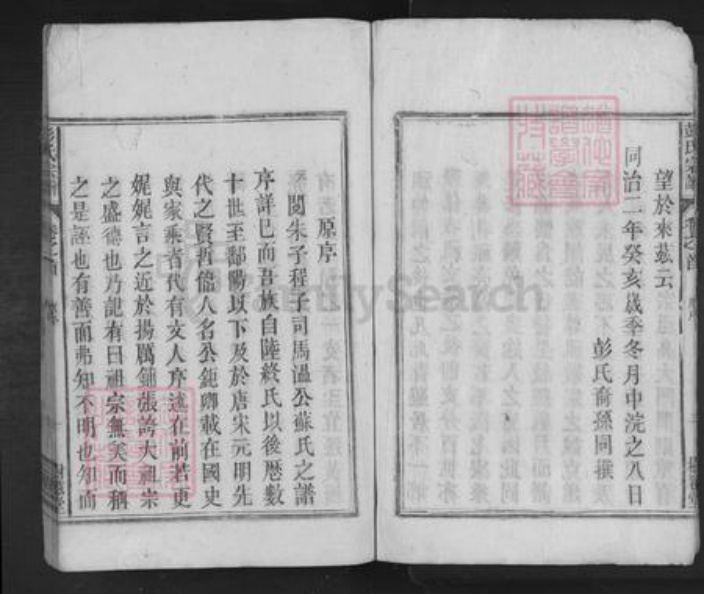 望於來茲云
同治二年癸亥歲季冬月中浣之八日
彭氏裔孫同撰
原序
閱朱子程子司馬溫公蘇氏之譜
序詳已而吾族自陸終氏以後歷數
十世至鄱陽以下及於唐宋元明先
代之賢哲儒人名公鉅卿載在國史
與家乘者代有文人序述在前若更
娓娓言之近於揚厲鋪張誇大祖宗
之盛德也乃記有曰祖宗無美而稱
之是誣也有善而弗知不明也知而
FamilySearch